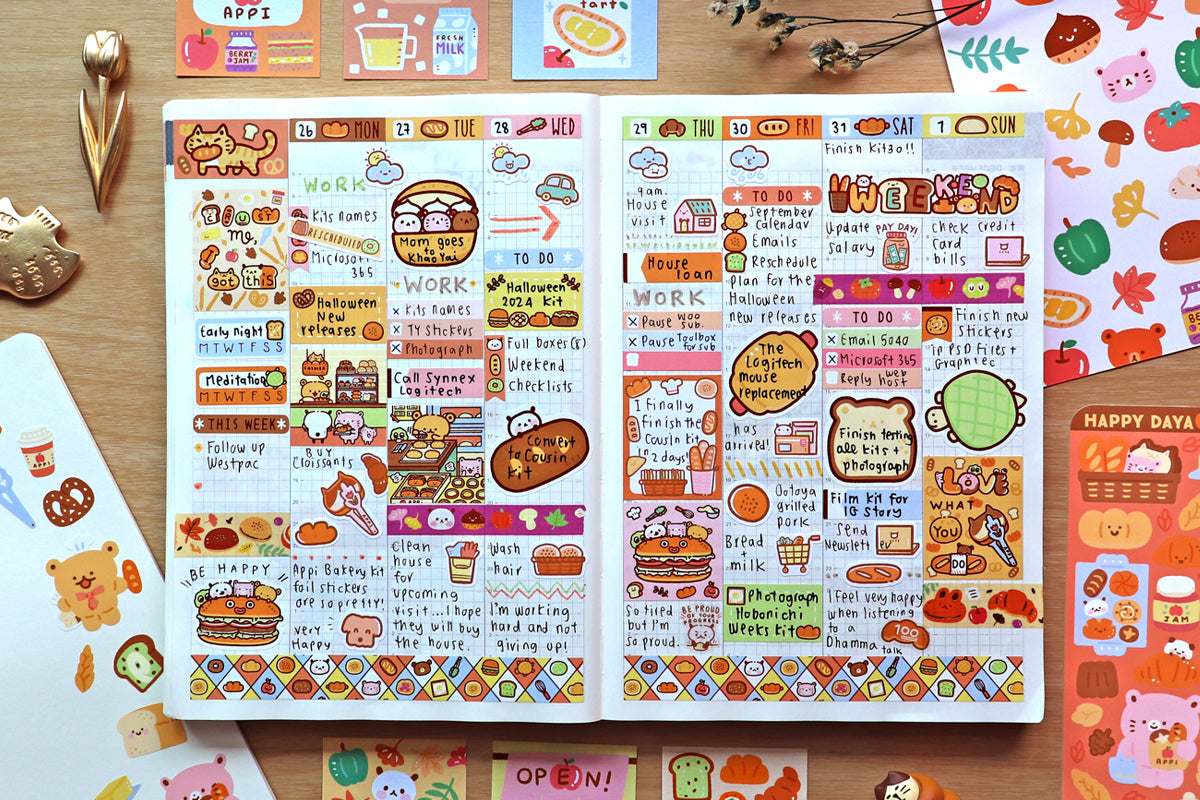 APPI
BERRY
JAM
FRESH
MILK
tart
me,
got this
Early night
M T W T F S S
Meditation
M T W T F S S
THIS WEEK
Follow up
Westpac
BE HAPPY
26 MON
WORK
Kits names
RESCHEDULED
Microsoft
365
Halloween
New
releases
BUY
Croissants
Appi Bakery kit
foil stickers
are so pretty!
very
Happy
27 TUE
Mom goes
to
Khao Yai
WORK
Kits names
TY Stickers
Photograph
Call Synnex
Logitech
clean
house
for
upcoming
visit...I hope
they will buy
the house.
28 WED
TO DO
Halloween
2024 Kit
Full Boxes(8)
Weekend
Checklists
Convert
to Cousin
kit
Wash
hair
I'm working
hard and not
giving up!
29 THU
9am.
House
visit
House
loan
WORK
Pause Woo
sub.
Pause Toolbox
for sub
I finally
finish the
Cousin kit
in 2 days!
So tired
but I'm
so proud.
BE PROUD
OF YOUR
PROGRESS
30 FRI
TO DO
September
calendar
Emails
Reschedule
plan for the
Halloween
new releases
The
Logitech
mouse
replacement
has
arrived!
Ootoya
grilled
pork
Bread
+
milk
Photograph
Hobonichi
Weeks Kit
31 SAT
Finish Kit30!!
WEEKEND
Update
salary
PAY DAY!
TO DO
Email 5040
Microsoft 365
Reply web
host
Finish testing
all kits +
photograph
Film kit for
IG Story
Send
Newsletter
I feel very happy
when listening
to a
Dhamma talk
100
1 SUN
check credit
card
bills
Finish new
stickers
in PSD Files +
Graphtec
LOVE
WHAT
YOU
DO
OPEN!
APPI
HAPPY DAYA
JAM
APPI